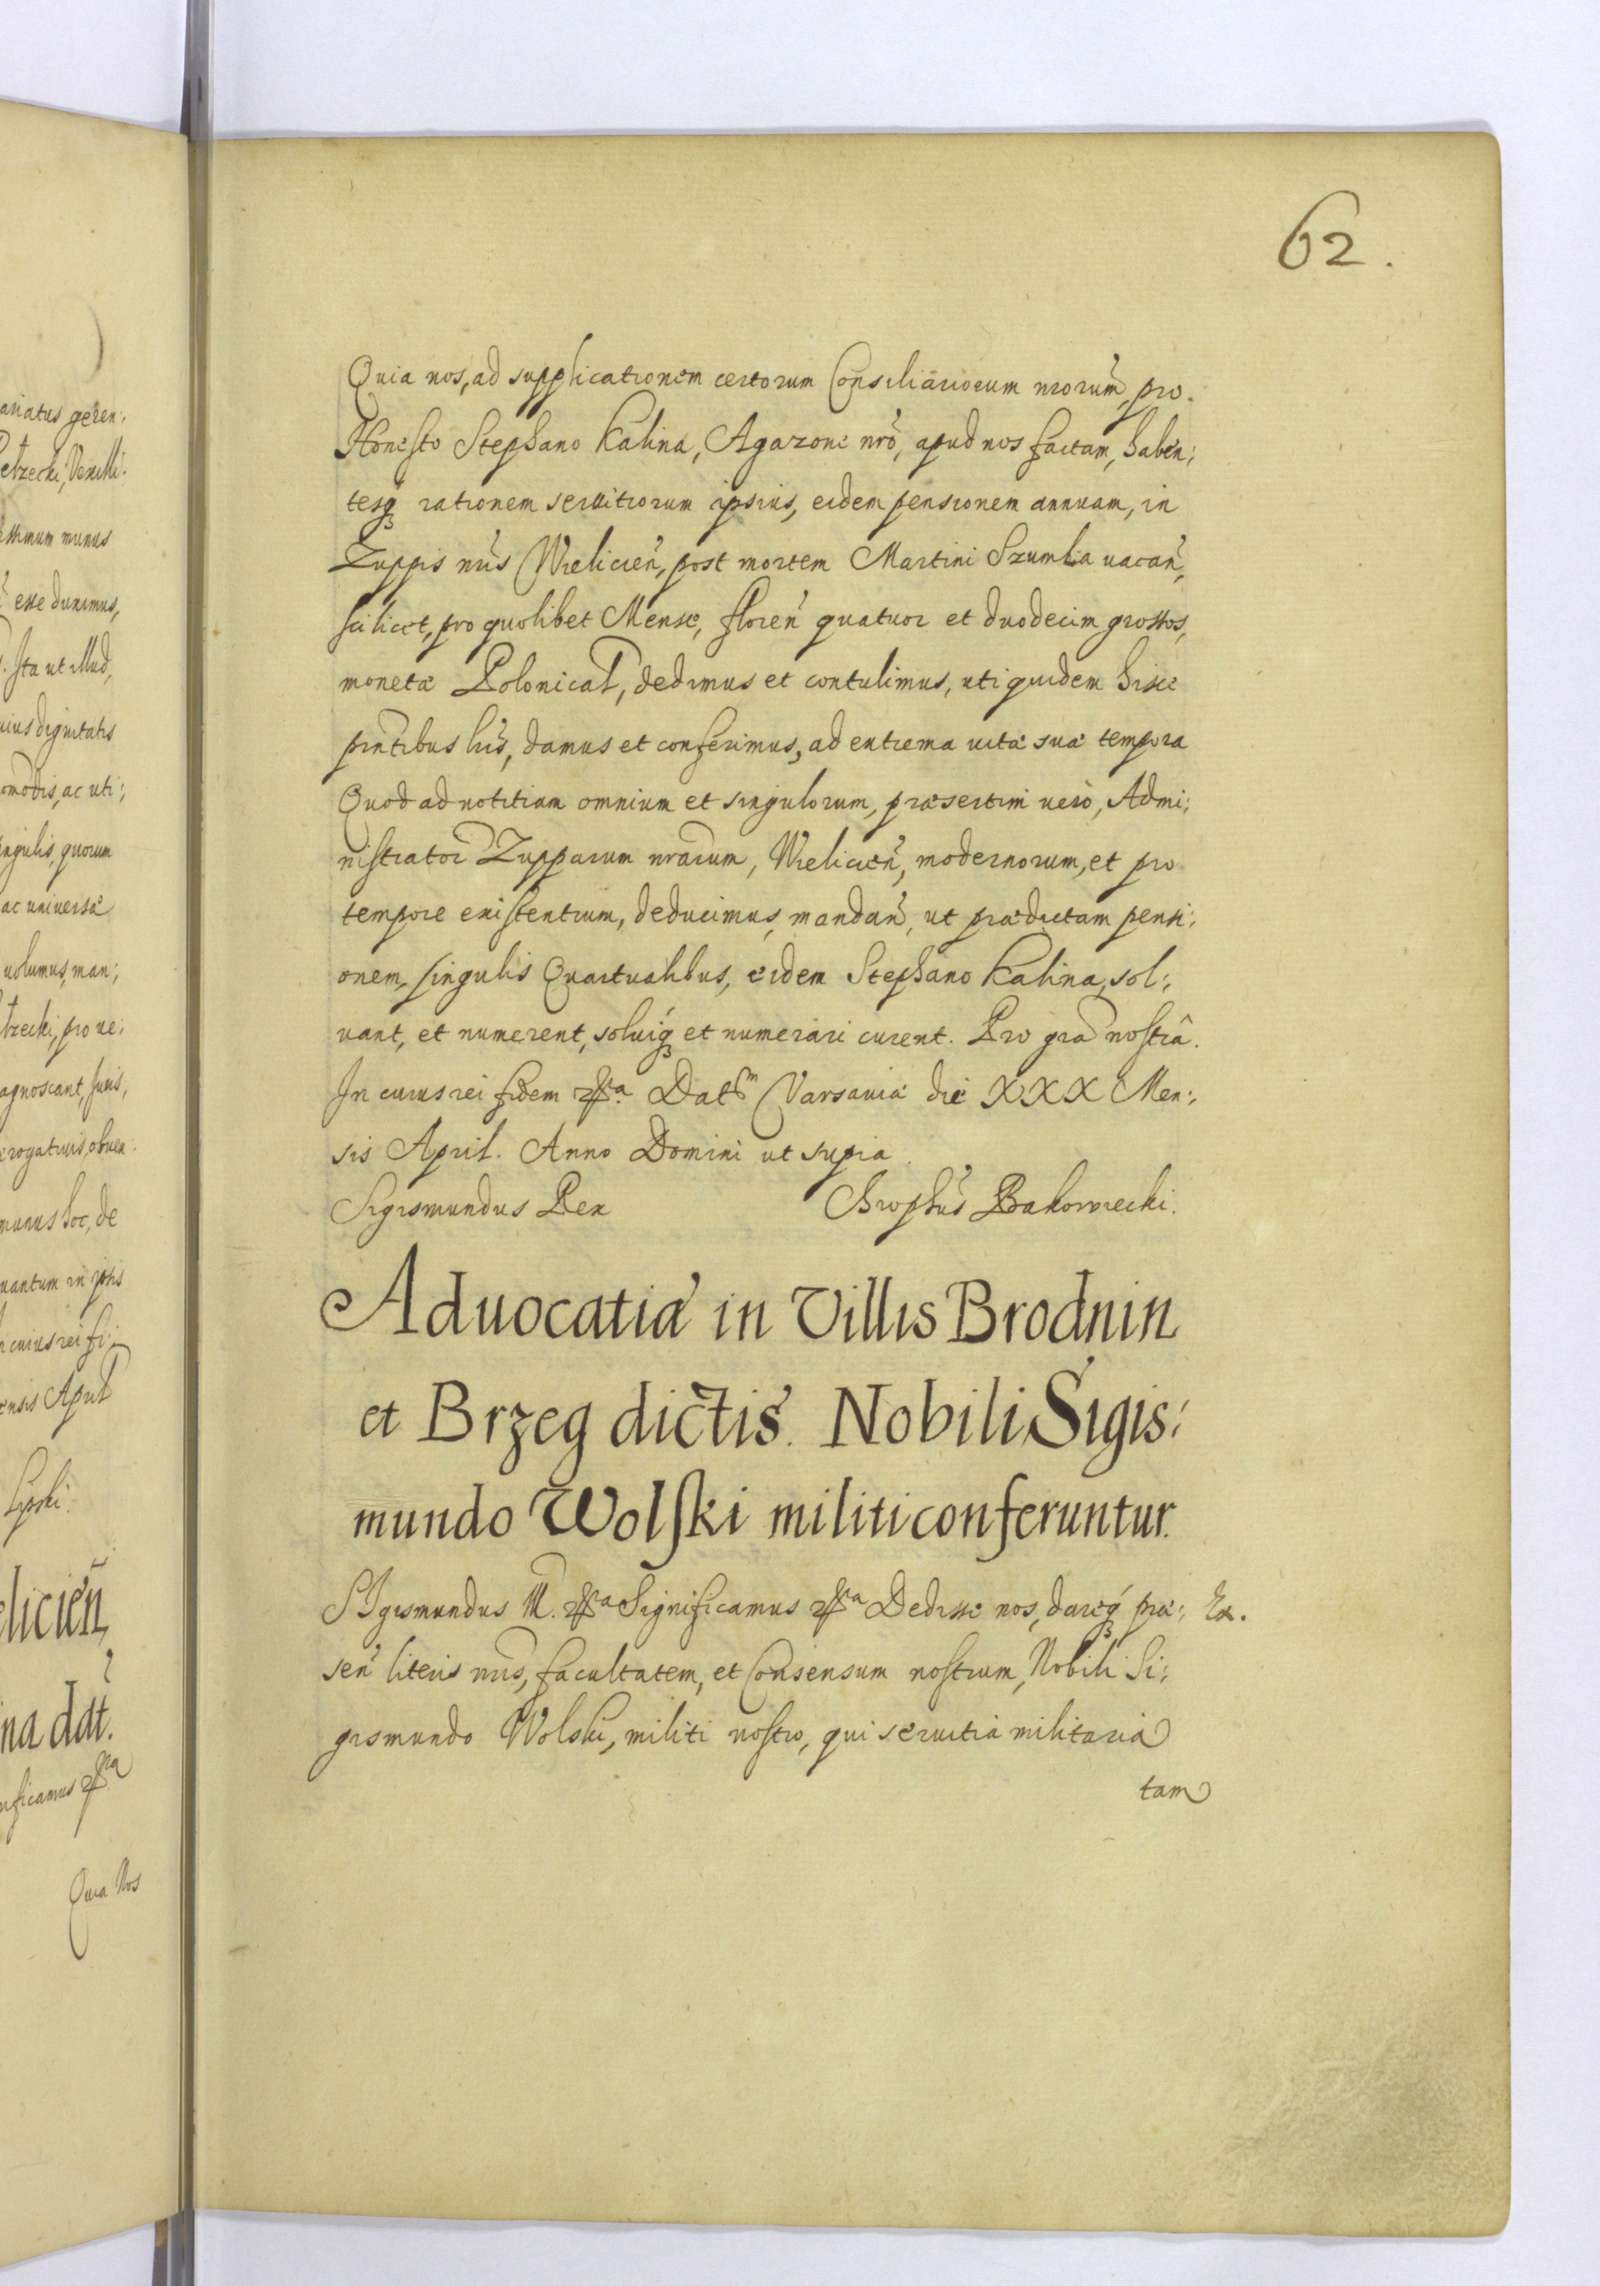 62.
Quia nos, ad supplicationem certorum Consiliariorum nrorum̃, pro.
Honesto Stephano Kalina, Agazoni nrõ, apud nos factam, haben:
tesq3 rationem seruitiorum ipsius, eidem pensionem annuam, in
Zuppis nr̃is Wielicień, post mortem Martini Szumlia uacań,
scilicet, pro quolibet Mense, floreń quatuor et duodecim grossos,
monetæ Polonical, dedimus et contulimus, uti quidem hisce
pñtibus lr̃is, damus et conferimus, ad extrema uitæ suæ tempora
Quod ad notitiam omnium et singulorum, præsertim uerò, Admi:
nistrator Zupparum nrarum, Wielicień, modernorum, et pro
tempore existentium, deducimus, mandań, ut prædictam pensi:
onem, singulis Quartualibus, eidem Stephano Kalina, sol:
uant, et numerent, soluiq3 et numerari curent. Pro gra nostrâ.
In cuius rei fidem &ca Datm Varsauiæ die XXX Men:
sis April. Anno Domini ut supra.
Sigismundus Rex Chrophũs Bakowiecki.
Aduocatiæ in Villis Brodnin
et Brzeg dictis. Nobili Sigis:
mundo Wolski militi conferuntur.
SIgismundus III. &ca Significamus &ca Dedisse nos, dareq3 præ: Ex.
señ literis nr̃is, facultatem, et Consensum nostrum, Nobili Si:
gismundo Wolski, militi nostro, qui seruitia militaria
tam
ariatus geren:
ximum munus
esse duximus,
Ita ut illud,
uius dignitatis
omodis, ac uti:
ingulis, quorum
ac uniuersæ
uolumus, man:
trzecki, pro ue:
agnoscant, suis,
erogatiuis, obuen:
munus hoc, de
uantum in ipsis
n cuius rei fi:
ensis April
Lipski.
elicień,
na dat.
nificamus &ca
Quia Nos